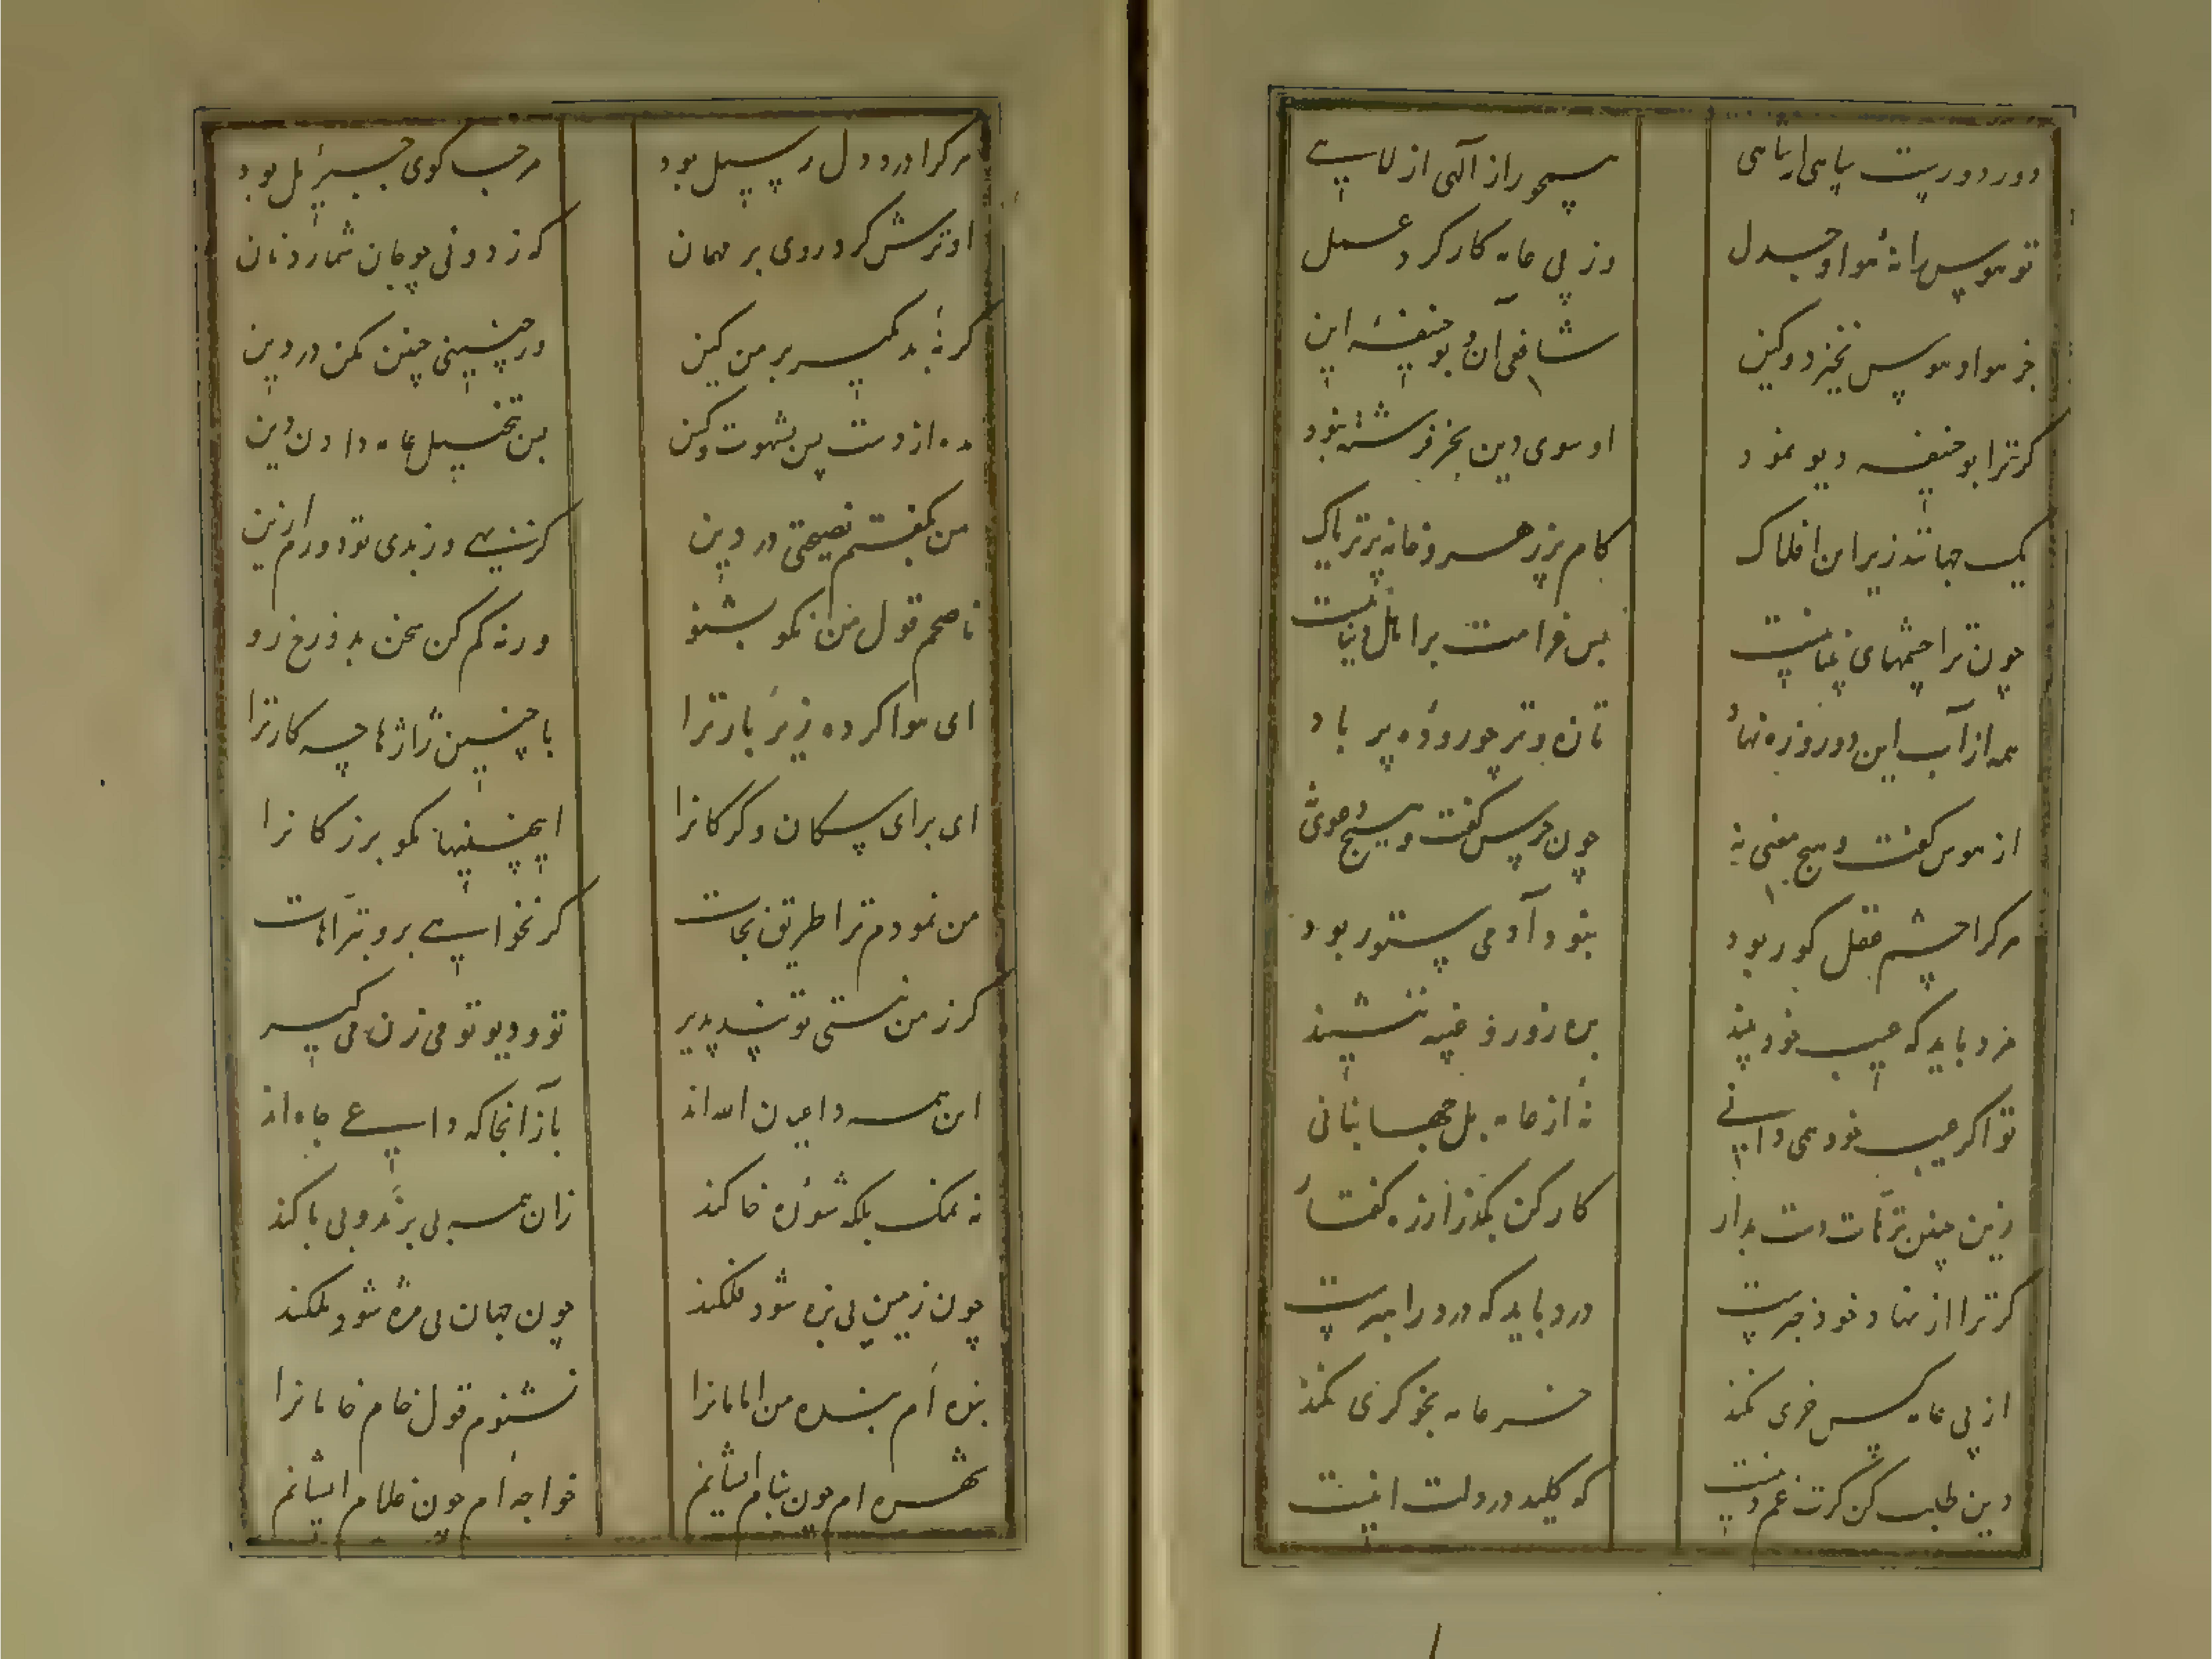 دور دوریست
تو هوس رانهٔ هوا و جدل وز پی عامه کارکرد عمل
جز هوا و هوس نخیزد و کین شافعی آن و بوحنیفه این
گر ترا بوحنیفه دیو نمود او سوی دین بجز فرشته نبود
یک جهانند زیر این افلاک کام پر زهر و خانه پر تریاک
چون ترا چشمهای بینا نیست
همه از آب این دو روزه نهاد تازه و تر چو روده پر باد
از هوس گفت و هیچ معنی نه چون جرس گفت و هیچ دعوی
هرکرا چشم عقل کور بود نبود آدمی ستور بود
مرد باید که عیب خود بیند بره زور و غیبه ننشیند
تو اگر عیب خود همی دانی نه از عامه بل جهانبانی
زین چنین ترهات دست بدار کار کن بگذر از ره گفتار
گر ترا از نهاد خود خبرست درد باید که درد راهبرست
از پی عامه کس خری نکند خر عامه بخو کری نکند
دین طلب کن گرت غم دینست که کلید در دولت اینست
هرکرا درد دل رسیل بود مرحبا گوی جبرئیل بود
او ترش کرد روی بر مهمان که ز دونی چو جان شمارد نان
گر نهٔ بد مگیر بر من کین ور چنینی چنین مکن در دین
مده از دست شهوت و کین تحصیل عامه دادن دین
من بگفتم نصیحتی در دین
ناصحم قول من نکو بشنو ورنه کم کن سخن بدوزخ رو
ای هوا کرده زیر بار ترا با چنین ژاژها چه کار ترا
ای برای سگان و گرگانرا اینچنینها مگو بزرگانرا
من نمودم ترا طریق نجات گر نخواهی برو بترّهات
گر ز من نیستی تو پندپذیر تو و دیو تو می زن و می گیر
این همه داعیان الله اند باز آنجا که داعی جاه اند
نه نمک بلکه شوره خاکند زان همه بی برند و بی باکند
چون زمین بی بزه شود فلکند چون جهان بی مزه شود نمکند
بنده ام بنده من امامانرا نشنوم قول خام خامانرا
شهره ام چون بنام ایشانم خواجه ام چون غلام ایشانم